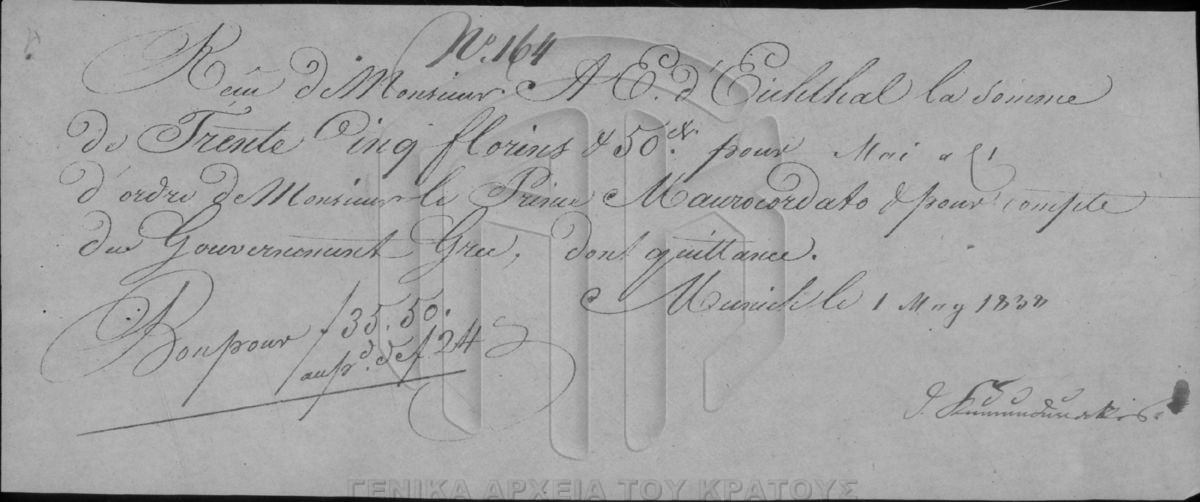 No. 164
Reçu de Monsieur A E. d'Eichthal la somme
de Trente Cinq florins & 50 xr. pour Mai
d'ordre de Monsieur le Prince Maurocordato & pour compte
du Gouvernement Grec, dont quittance.
Munich le 1 May 1838
Bon pour f 35. 50.
au pd. de f 24
ΓΕΝΙΚΑ ΑΡΧΕΙΑ ΤΟΥ ΚΡΑΤΟΥΣ